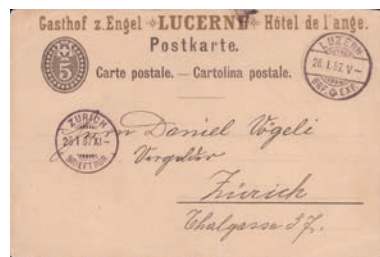 Gasthof z. Engel LUCERNE Hôtel de l'ange.
Postkarte.
5
Carte postale. — Cartolina postale.
LUZERN
26. I. 87. V –
BRF. EXP.
ZÜRICH
26 I 87 XI –
Daniel Vögeli
Vergolder
Zürich
Thalgasse